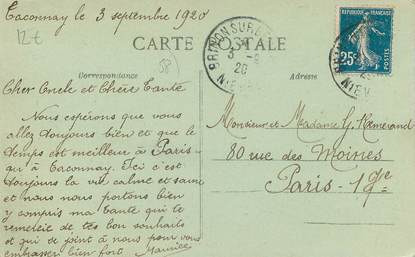 Taconnay le 3 septembre 1920
12t
CARTE POSTALE
58
Correspondance
Adresse
BRINON SUR
3 - 9
20
NIEV
RÉPUBLIQUE FRANÇAISE
25c
POSTES
Cher Oncle et Chère Tante
Nous espérons que vous
allez toujours bien et que le
temps est meilleur à Paris
qu'à Taconnay. Ici c'est
toujours la vie calme et saine
et nous nous portons bien
y compris ma Tante qui te
remercie de tes bon souhaits
et qui se joint à nous pour vous
embrasser bien fort Maurice
Monsieur et Madame G.
80 rue des Moines
Paris - 17e